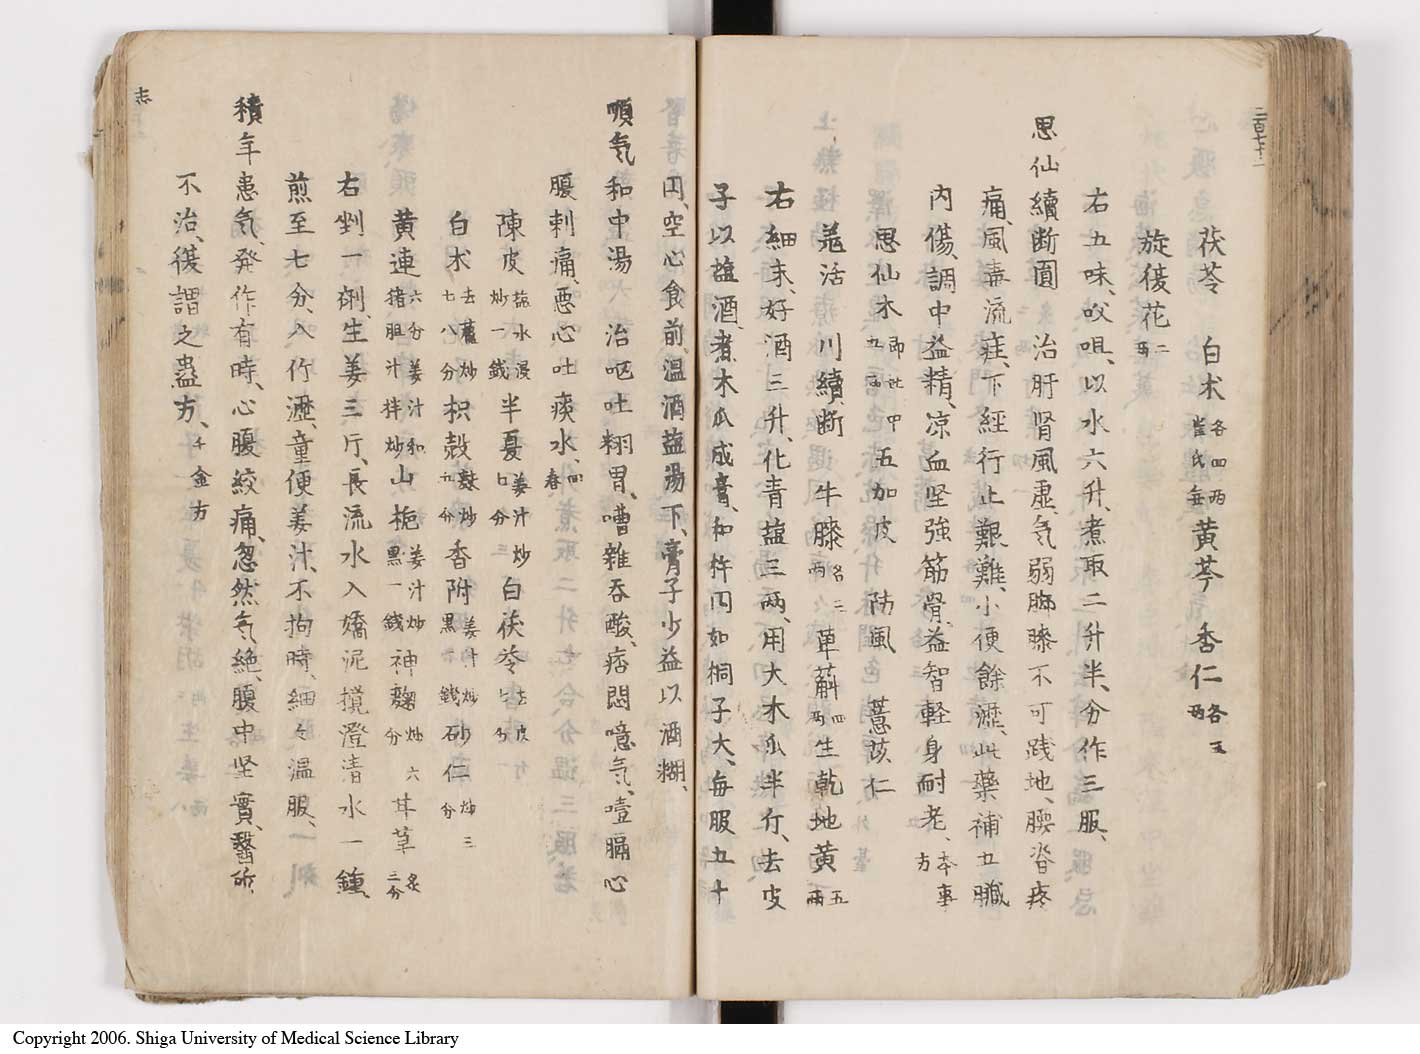 二百七十二
茯苓 白朮各四兩崔氏無 黄芩 杏仁各五兩
旋復花二兩
右五味、㕮咀、以水六升、煮取二升半、分作三服、
思仙續斷圓 治肝腎風虛、気弱脚膝不可践地、腰脊疼
痛、風毒流疰、下經行止艱難、小便餘瀝、此藥補五臓
内傷、調中益精、凉血坚強筋骨、益智軽身耐老、本事方
思仙木即杜仲五兩 五加皮 防風 薏苡仁
羌活 川續斷 牛膝各三兩 萆薢四兩 生乾地黄五兩
右細末、好酒三升、化青盐三兩、用大木瓜半斤、去皮
子以盐酒、煮木瓜成膏、和杵円如桐子大、每服五十
円、空心食前、温酒盐湯下、膏子少益以酒糊、
順気和中湯 治呕吐翔胃、嘈雜吞酸、痞悶噫気、噎膈心
腹刺痛、悪心吐痰水、回春
陳皮盐水浸炒一錢 半夏姜汁炒七分 白茯苓去皮七分
白朮去蘆炒八分 枳殻麸炒五分 香附姜汁炒黒一錢 砂仁炒三分
黄連六分姜汁和猪胆汁拌炒 山梔姜汁炒黒一錢 神麴炒六分 甘草炙三分
右剉一剤、生姜三斤、長流水入嬌泥攪澄清水一鍾、
煎至七分、入竹瀝、童便姜汁、不拘時、細々温服、
積年患気、発作有時、心腹絞痛、忽然気絶、腹中坚實、醫所
不治、復謂之蠱方、千金方
志
Copyright 2006. Shiga University of Medical Science Library